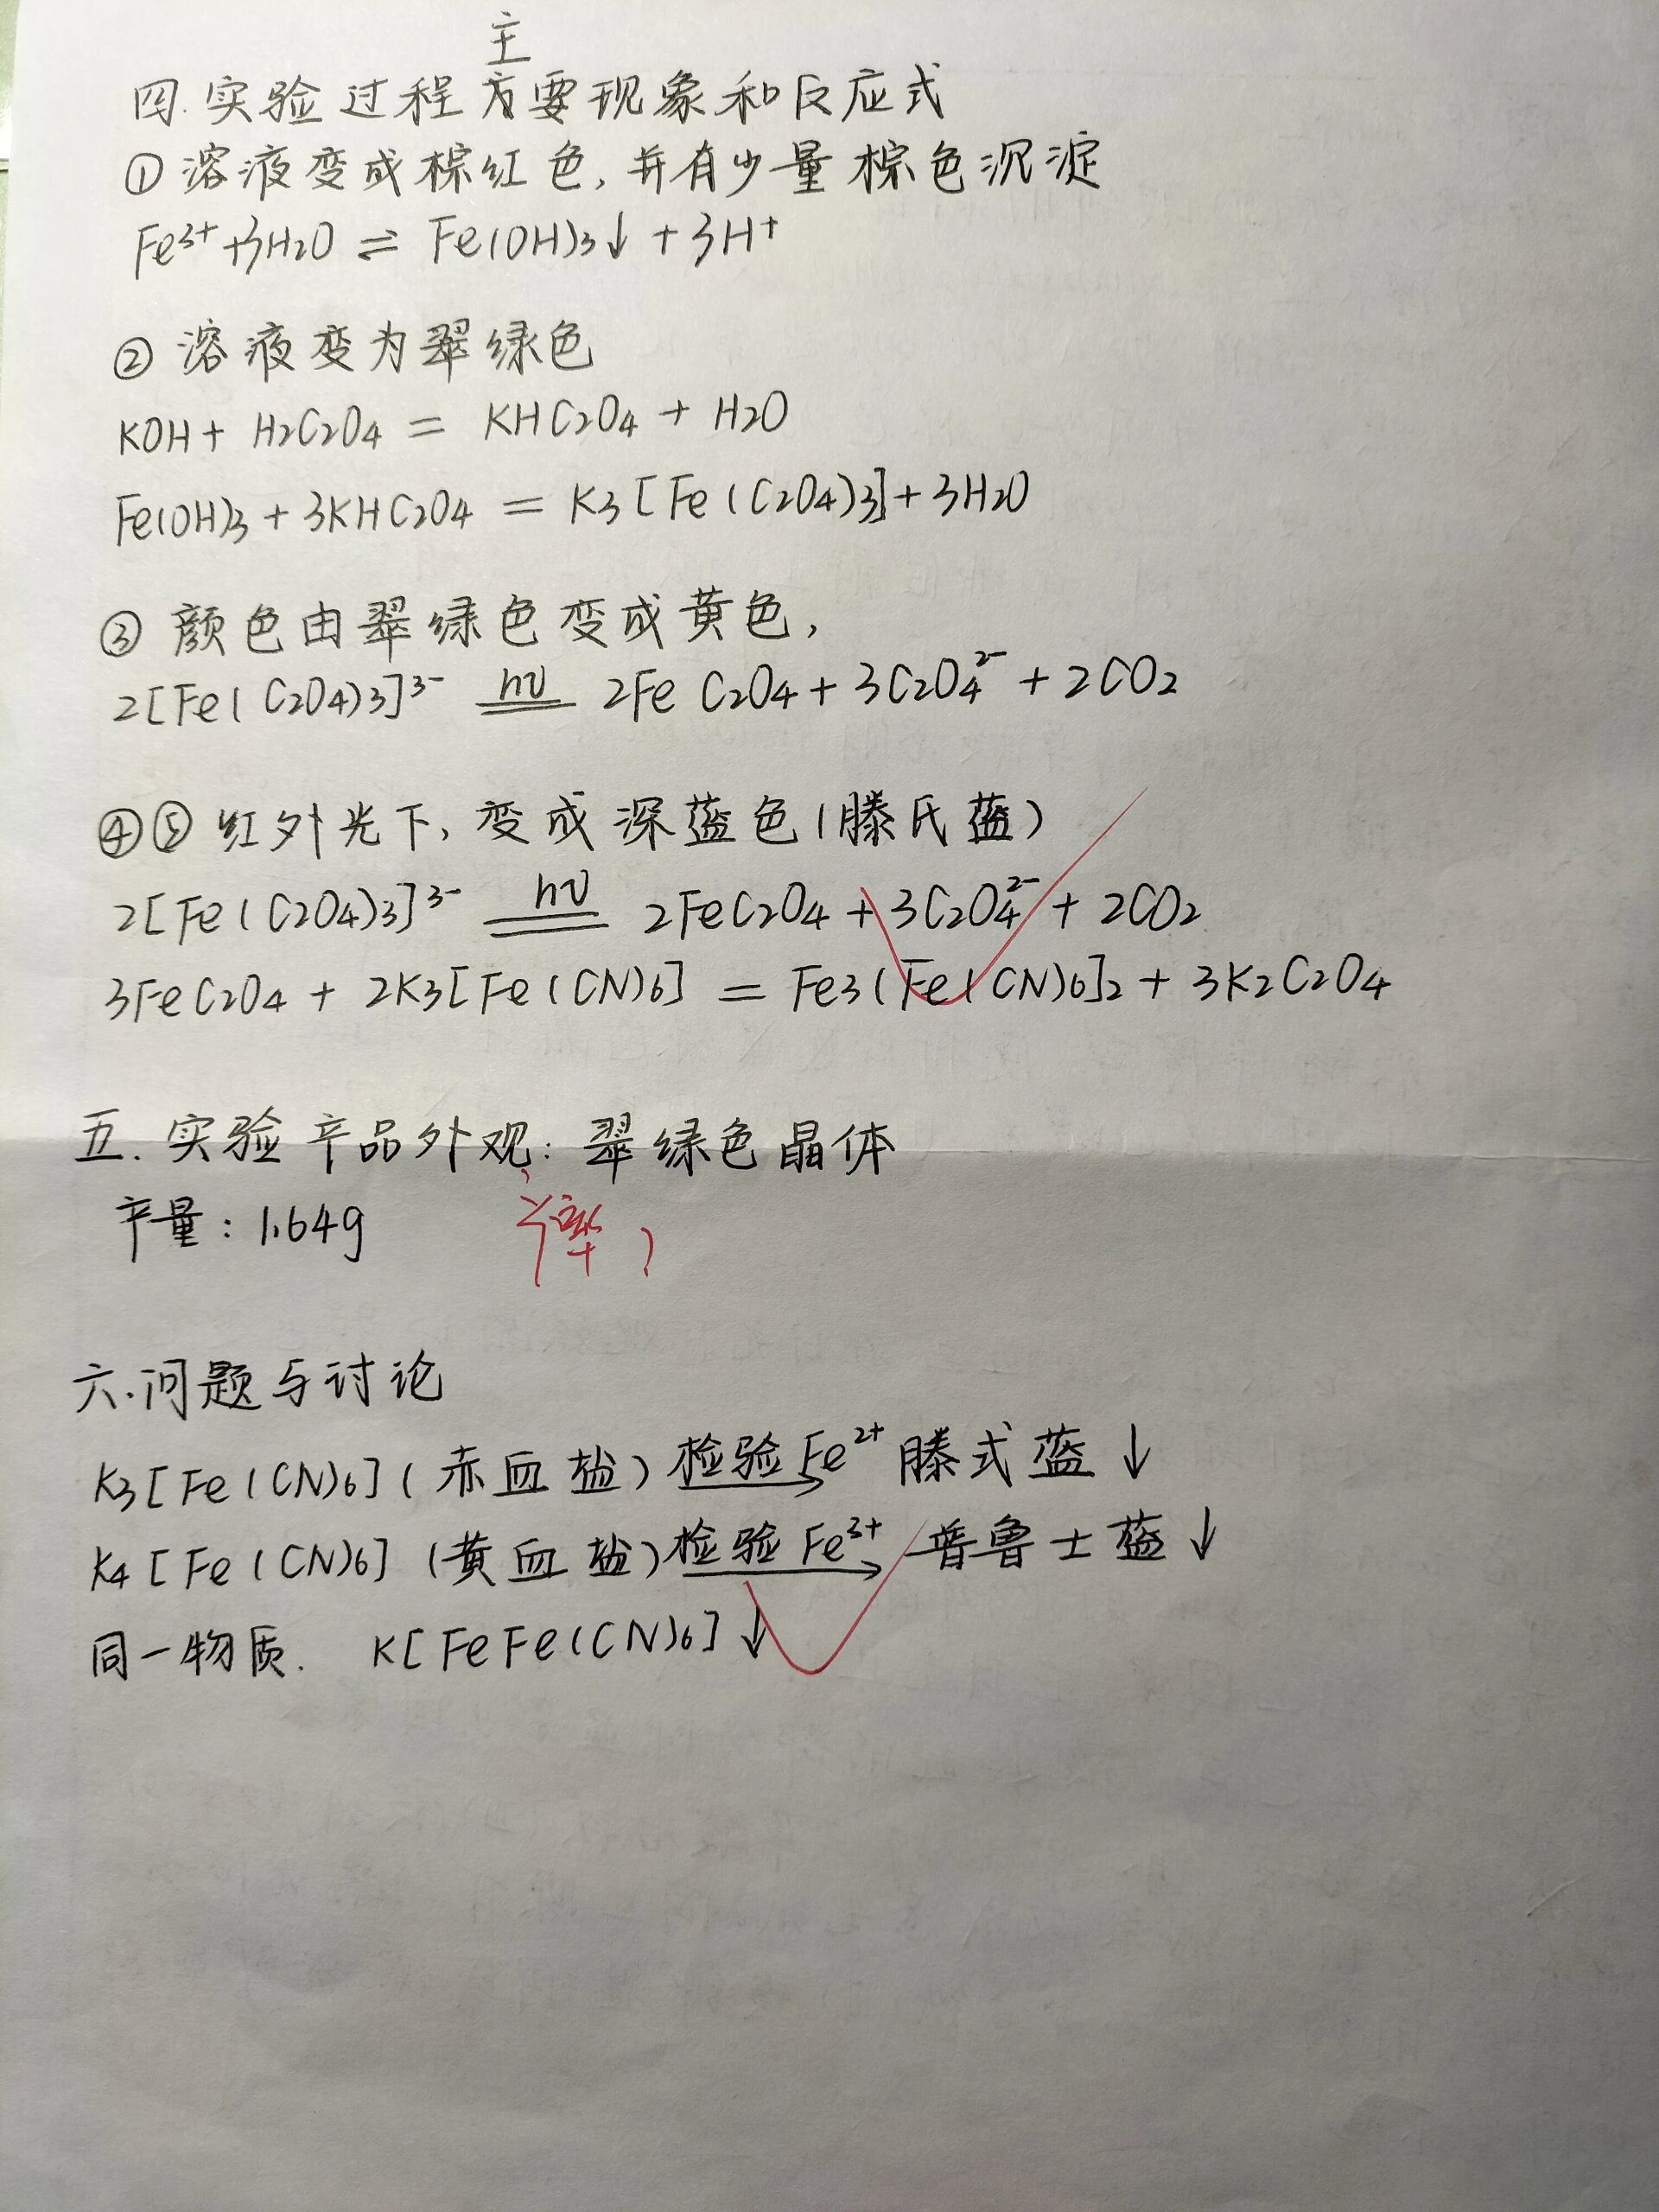 主
四.实验过程方要现象和反应式
①溶液变成棕红色,并有少量棕色沉淀
Fe³⁺+3H₂O ⇌ Fe(OH)₃↓ + 3H⁺
②溶液变为翠绿色
KOH + H₂C₂O₄ = KHC₂O₄ + H₂O
Fe(OH)₃ + 3KHC₂O₄ = K₃[Fe(C₂O₄)₃] + 3H₂O
③颜色由翠绿色变成黄色,
hν
2[Fe(C₂O₄)₃]³⁻ = 2FeC₂O₄ + 3C₂O₄²⁻ + 2CO₂
④⑤红外光下,变成深蓝色(滕氏蓝)
hν
2[Fe(C₂O₄)₃]³⁻ = 2FeC₂O₄ + 3C₂O₄²⁻ + 2CO₂
3FeC₂O₄ + 2K₃[Fe(CN)₆] = Fe₃(Fe(CN)₆]₂ + 3K₂C₂O₄
五.实验产品外观:翠绿色晶体
产量:1.64g 产率?
六.问题与讨论
K₃[Fe(CN)₆](赤血盐) 检验Fe²⁺→ 滕式蓝↓
K₄[Fe(CN)₆](黄血盐) 检验Fe³⁺→ 普鲁士蓝↓
同一物质. K[FeFe(CN)₆]↓